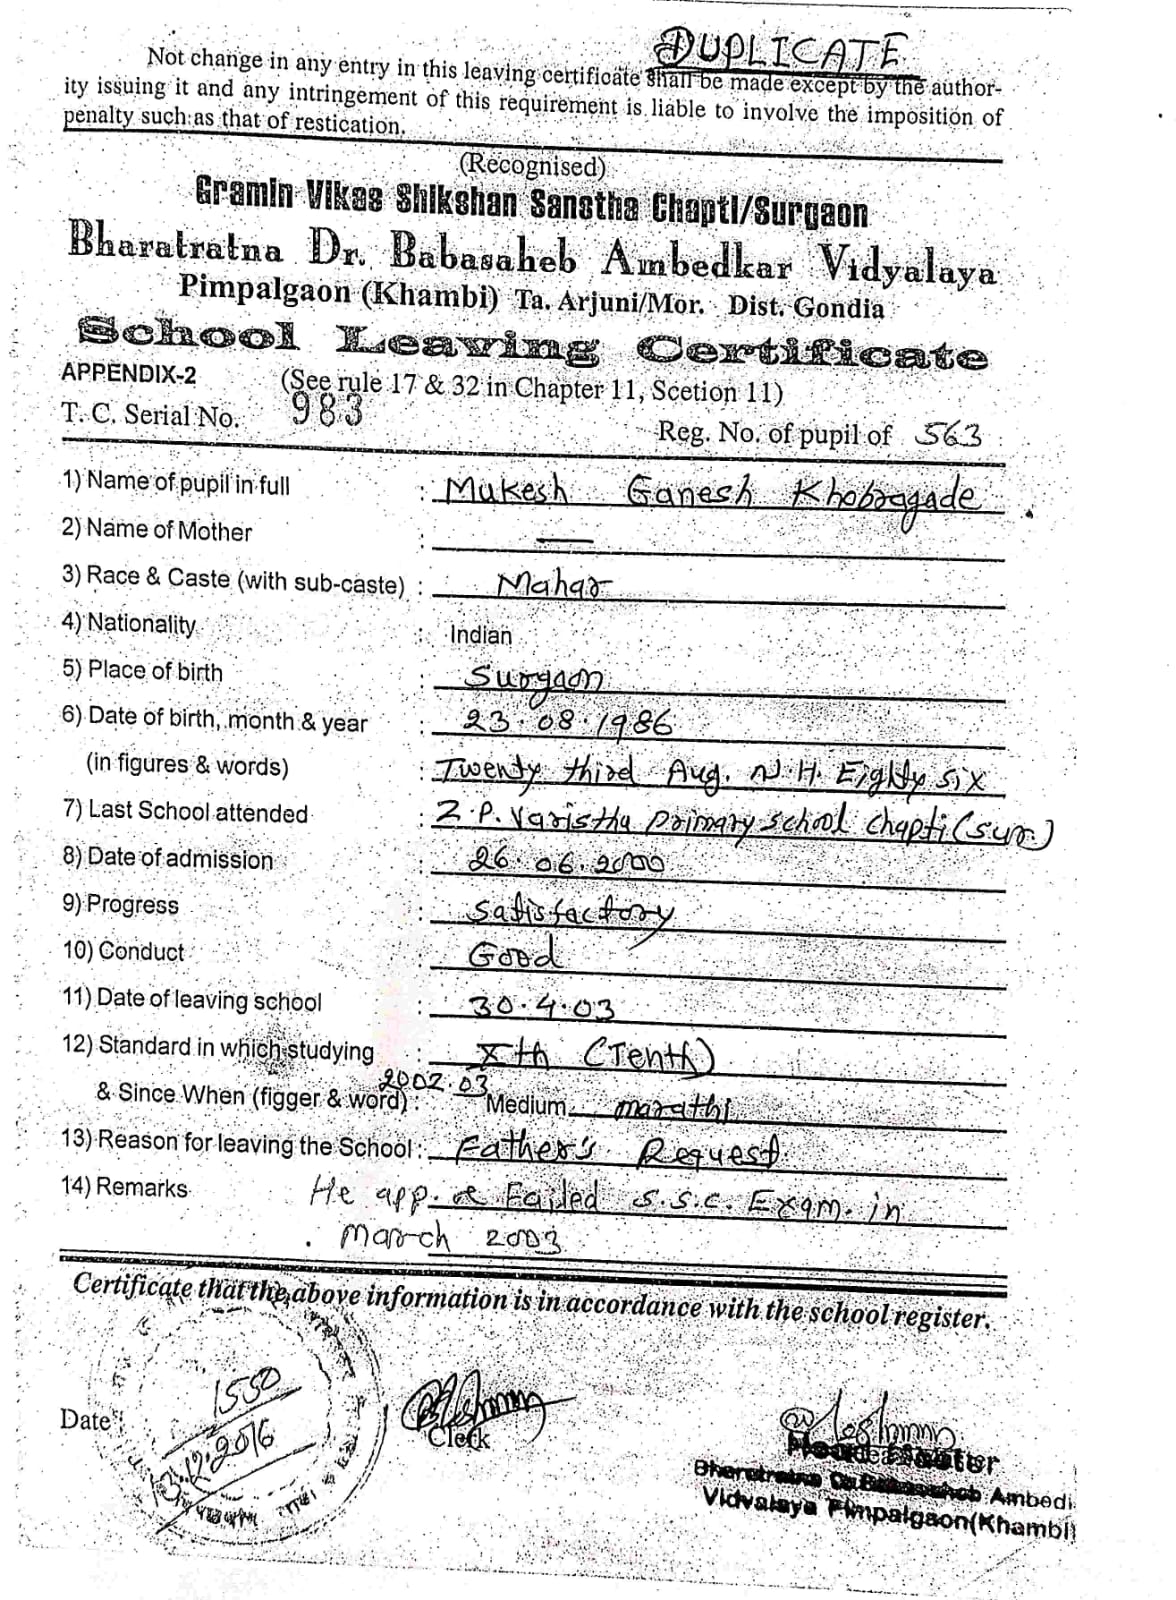 DUPLICATE
Not change in any entry in this leaving certificate shall be made except by the author-
ity issuing it and any intringement of this requirement is liable to involve the imposition of
penalty such as that of restication.
(Recognised)
Gramin Vikas Shikshan Sanstha Chapti/Surgaon
Bharatratna Dr. Babasaheb Ambedkar Vidyalaya
Pimpalgaon (Khambi) Ta. Arjuni/Mor. Dist. Gondia
School Leaving Certificate
APPENDIX-2 (See rule 17 & 32 in Chapter 11, Scetion 11)
T. C. Serial No. 983 Reg. No. of pupil of 563
1) Name of pupil in full : Mukesh Ganesh Khobragade
2) Name of Mother : —
3) Race & Caste (with sub-caste) : Mahar
4) Nationality : Indian
5) Place of birth : Surgaon
6) Date of birth, month & year : 23.08.1986
(in figures & words) : Twenty third Aug. N.H. Eighty six
7) Last School attended : Z.P. Varistha primary school chapti (sur.)
8) Date of admission : 26.06.2000
9) Progress : Satisfactory
10) Conduct : Good
11) Date of leaving school : 30.4.03
12) Standard in which studying : Xth (Tenth)
& Since When (figger & word) : 2002.03 Medium marathi
13) Reason for leaving the School : Father's Request
14) Remarks He app. & Failed S.S.C. Exam. in
March 2003
Certificate that the above information is in accordance with the school register.
1550
Date 13.12.2016
Clerk
Head Master
Bharatratna Dr. Babasaheb Ambedi
Vidyalaya Pimpalgaon(Khambi)